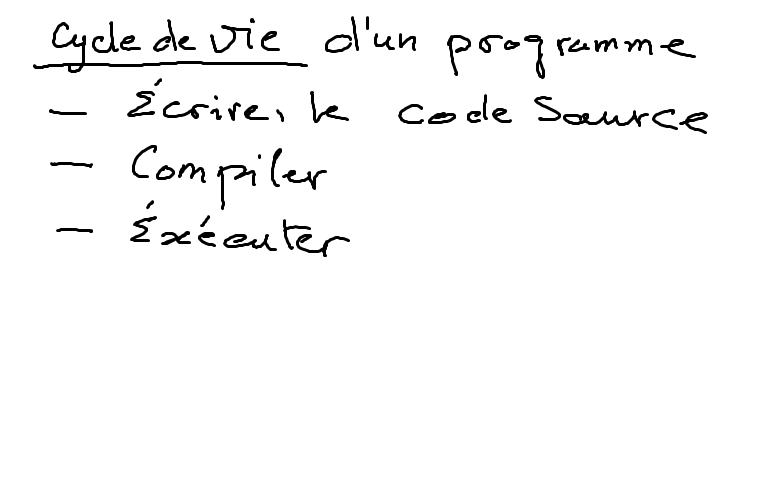 Cycle de vie d'un programme
- Écrire, le code Source
- Compiler
- Éxécuter